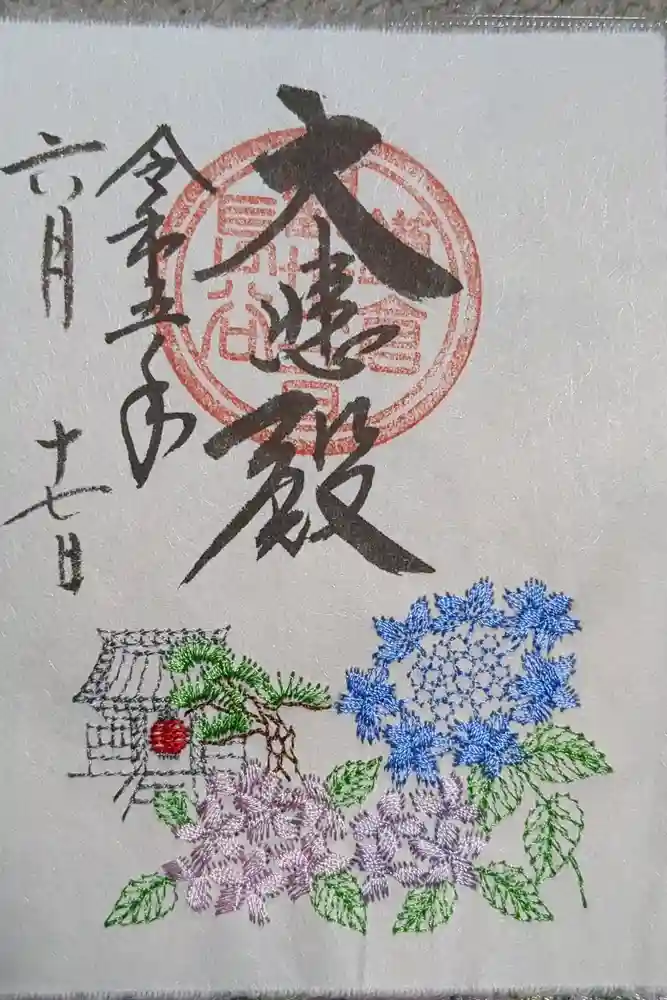 大悲殿
鎌倉
長谷
令和五年
六月十七日